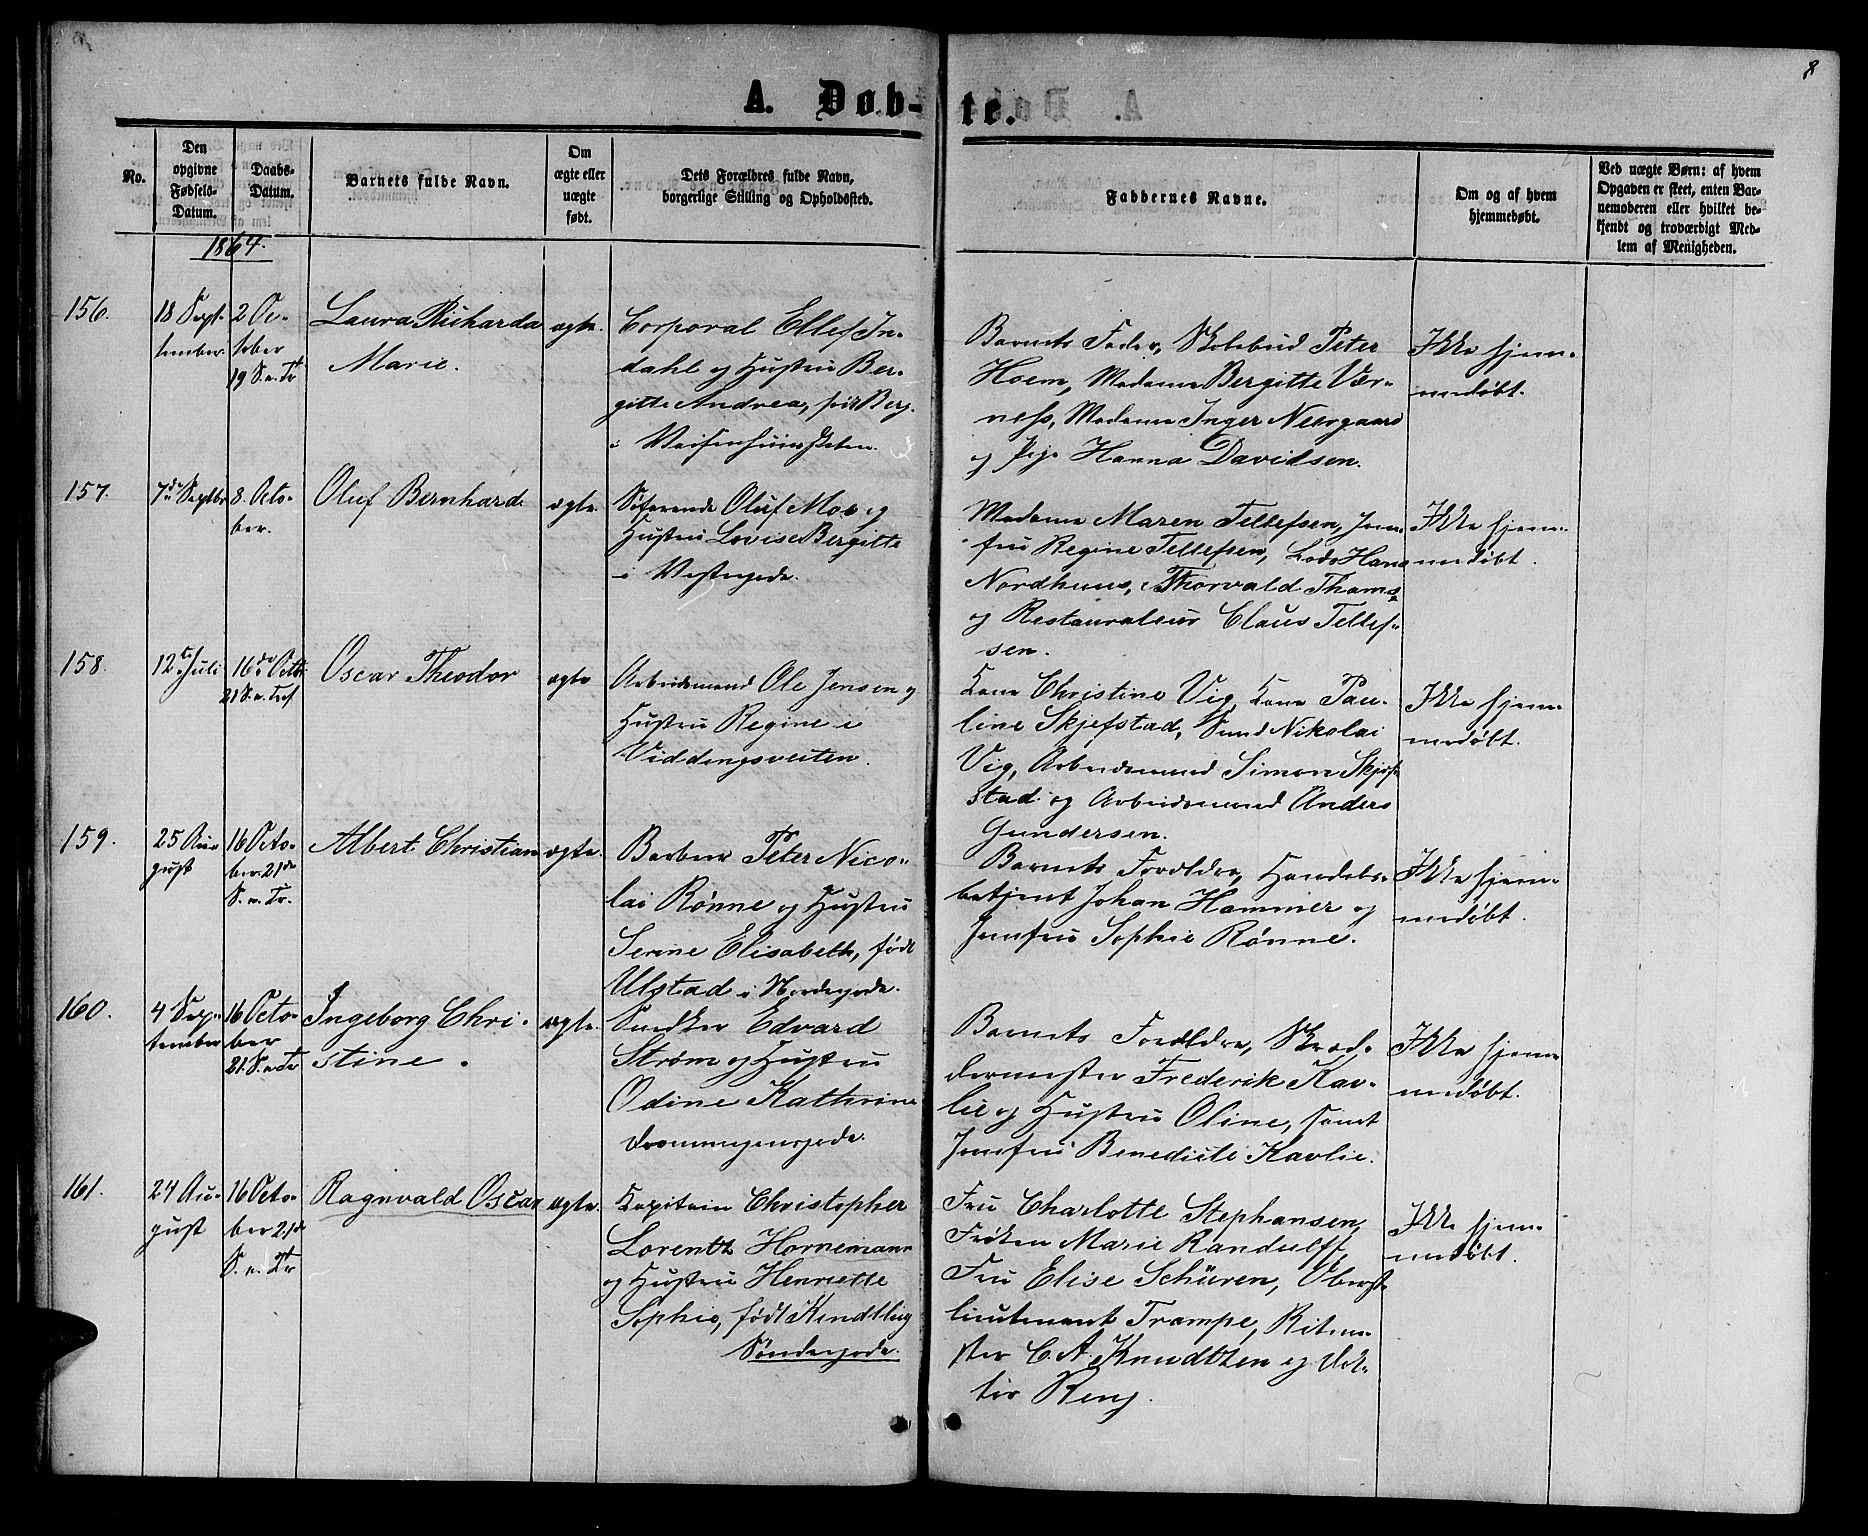 8
A. Døb-te.
No.
Den
opgivne
Fødsels-
Datum.
Daabs-
Datum.
Barnets fulde Navn.
Om
ægte eller
uægte
født.
Dets Forældres fulde Navn,
borgerlige Stilling og Opholdssted.
Faddernes Navne.
Om og af hvem
hjemmedøbt.
Ved uægte Børn: af hvem
Opgaven er skeet, enten Bar-
nemoderen eller hvilket be-
kjendt og troværdigt Med-
lem af Menigheden.
1864.
156.
18 Sept-
tember.
2 Oc-
tober
19 S. e. Tr
Laura Richarda
Marie.
ægte.
Corporal Ellef In-
dahl og Hustru Ber-
gitte Andrea, født Berg.
i Vaisenhuusgaden.
Barnets Fader, Skolebud Peter
Hoem, Madame Bergitte Vær-
ness, Madame Inger Neergaard
og Pige Hanna Davidsen.
Ikke hjem-
medøbt.
157.
7de Septbr
8. Octo-
ber.
Oluf Bernhard.
ægte.
Søfarende Oluf Moe og
Hustru Lovise Bergitte
i Vestregade.
Madame Maren Tellefsen, Jom-
fru Regine Tellefsen, Lods Hans
Nordhuus, Thorvald Thams
og Restaurateur Claus Tellef-
sen.
Ikke hjem-
medøbt.
158.
12te Juli
16de Octb
21 S. e. Tref
Oscar Theodor
ægte
Arbeidsmand Ole Jensen og
Hustru Regine i
Viddingsveiten.
Kone Christine Vig, Kone Pau-
line Skjefstad, Svend Nikolai
Vig, Arbeidsmand Simon Skjef-
stad og Arbeidsmand Anders
Gundersen.
Ikke hjem-
medøbt.
159.
25 Au-
gust
16 Octo-
ber. 21de
S. e. Tr.
Albert Christian
ægte.
Barber Peter Nico-
lai Rønne og Hustru
Serine Elisabeth, født
Ulstad i Nordregade.
Barnets Forældre, Handels-
betjent Johan Hammer og
Jomfru Sophie Rønne.
Ikke hjem-
medøbt.
160.
4 Sep-
tember
16 Octo-
ber
21. S. e. Tr
Ingeborg Chri-
stine.
ægte.
Snedker Edvard
Strøm og Hustru
Odine Kathrine
Dronningensgade.
Barnets Forældre, Skræd-
dermester Frederik Kav-
lie og Hustru Oline, samt
Jomfru Benedicte Kavlie.
Ikke hjem-
medøbt.
161.
24 Au-
gust
16 Octo-
ber 21de
S. e. Tr
Ragnvald Oscar
ægte.
Kapitain Christopher
Lorentz Hornemann
og Hustru Henriette
Sophie, født
Søndregade.
Fru Charlotte Stephansen,
Frøken Marie Randulff,
Fru Elise Schüren, Oberst-
lieutenant Trampe, Ritme-
ster C. A. Knudtzen og Dok-
tor
Ikke hjem-
medøbt.